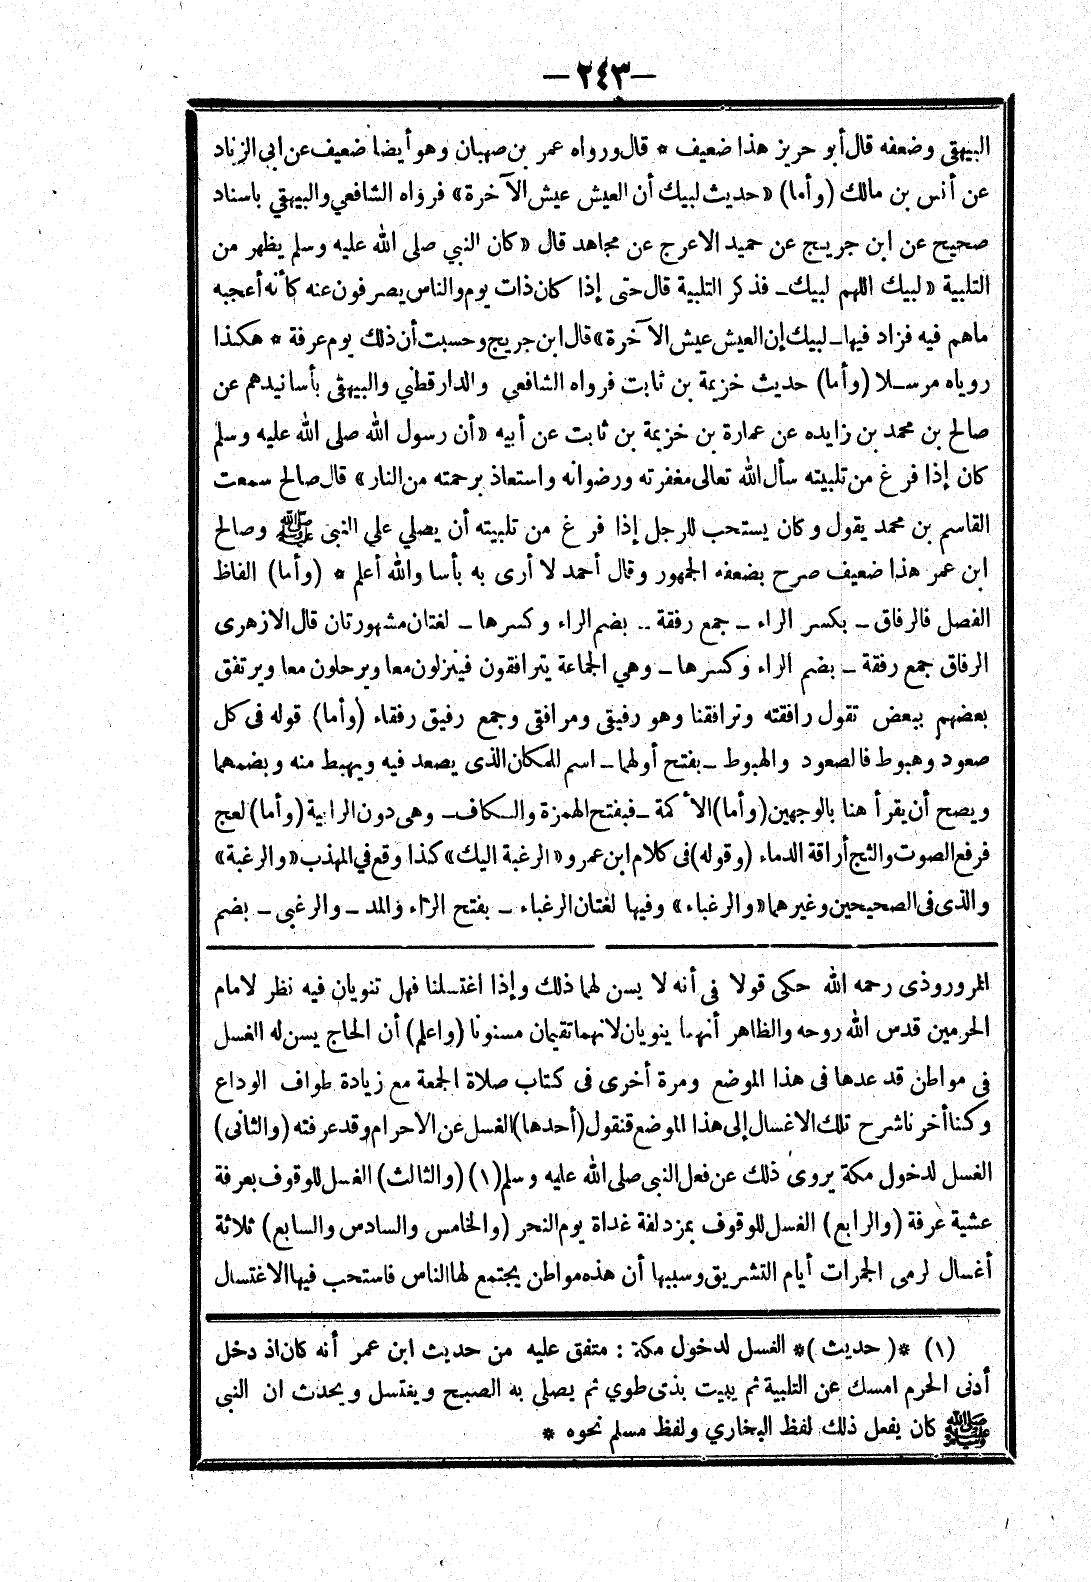 —٢٤٣—
البيهقى وضعفه قال أبو حريز هذا ضعيف * قال ورواه عمر بن صهبان وهو أيضا ضعيف عن ابي الزناد
عن أنس بن مالك (وأما) «حديث لبيك أن العيش عيش الآخرة» فرواه الشافعي والبيهقي باسناد
صحيح عن ابن جريج عن حميد الاعرج عن مجاهد قال «كان النبي صلى الله عليه وسلم يظهر من
التلبية «لبيك اللهم لبيك ـ فذكر التلبية قال حتى إذا كان ذات يوم والناس يصرفون عنه كأنه أعجبه
ماهم فيه فزاد فيها ـ لبيك إن العيش عيش الآخرة» قال ابن جريج وحسبت أن ذلك يوم عرفة * هكذا
روياه مرسلا (وأما) حديث خزيمة بن ثابت فرواه الشافعي والدارقطني والبيهقى بأسانيدهم عن
صالح بن محمد بن زايده عن عمارة بن خزيمة بن ثابت عن أبيه «أن رسول الله صلى الله عليه وسلم
كان إذا فرغ من تلبيته سأل الله تعالى مغفرته ورضوانه واستعاذ برحمته من النار» قال صالح سمعت
القاسم بن محمد يقول وكان يستحب للرجل إذا فرغ من تلبيته أن يصلي علي النبى ﷺ وصالح
ابن عمر هذا ضعيف صرح بضعفه الجمهور وقال أحمد لا أرى به بأسا والله أعلم * (وأما) الفاظ
الفصل فالرفاق ـ بكسر الراء ـ جمع رفقة .. بضم الراء وكسرها ـ لغتان مشهورتان قال الازهرى
الرفاق جمع رفقة ـ بضم الراء وكسرها ـ وهي الجماعة يترافقون فينزلون معا ويرحلون معا ويرتفق
بعضهم ببعض تقول رافقته وترافقنا وهو رفيقى ومرافقى وجمع رفيق رفقاء (وأما) قوله فى كل
صعود وهبوط فالصعود والهبوط ـ بفتح أولهما ـ اسم للمكان الذى يصعد فيه ويهبط منه وبضمهما
ويصح أن يقرأ هنا بالوجهين (وأما) الأكمة ـ فبفتح الهمزة والكاف ـ وهى دون الرابية (وأما) لعج
فرفع الصوت والثج أراقة الدماء (وقوله) فى كلام ابن عمر و«الرغبة اليك» كذا وقع في المهذب «والرغبة»
والذى فى الصحيحين وغيرهما «والرغباء» وفيها لغتان الرغباء ـ بفتح الراء والمد ـ والرغبى ـ بضم
المروروذى رحمه الله حكى قولا فى أنه لا يسن لهما ذلك وإذا اغتسلنا فهل تنويان فيه نظر لامام
الحرمين قدس الله روحه والظاهر أنهما ينويان لانهما تقيمان مسنونا (واعلم) أن الحاج يسن له الغسل
فى مواطن قد عدها فى هذا الموضع ومرة أخرى فى كتاب صلاة الجمعة مع زيادة طواف الوداع
وكنا أخرنا شرح تلك الاغسال إلى هذا الموضع فنقول (أحدها) الغسل عن الاحرام وقد عرفته (والثانى)
الغسل لدخول مكة يروى ذلك عن فعل النبى صلى الله عليه وسلم (١) (والثالث) الغسل للوقوف بعرفة
عشية عرفة (والرابع) الغسل للوقوف بمزدلفة غداة يوم النحر (والخامس والسادس والسابع) ثلاثة
أغسال لرمى الجمرات أيام التشريق وسببها أن هذه مواطن يجتمع لها الناس فاستحب فيها الاغتسال
(١) *( حديث )* الغسل لدخول مكة : متفق عليه من حديث ابن عمر أنه كان اذ دخل
أدنى الحرم امسك عن التلبية ثم يبيت بذى طوي ثم يصلي به الصبح ويغتسل ويحدث ان النبي
ﷺ كان يفعل ذلك لفظ البخاري ولفظ مسلم نحوه *